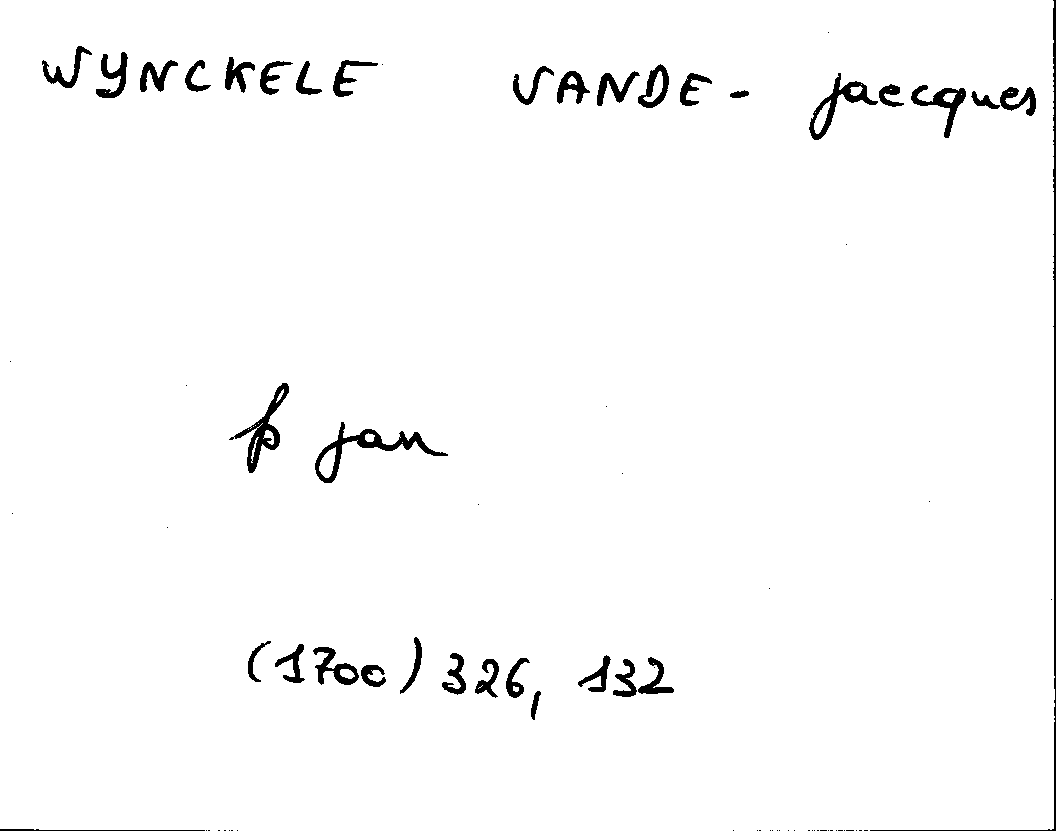 WYNCKELE VANDE - jaecques
fs jan
(1700) 326, 132